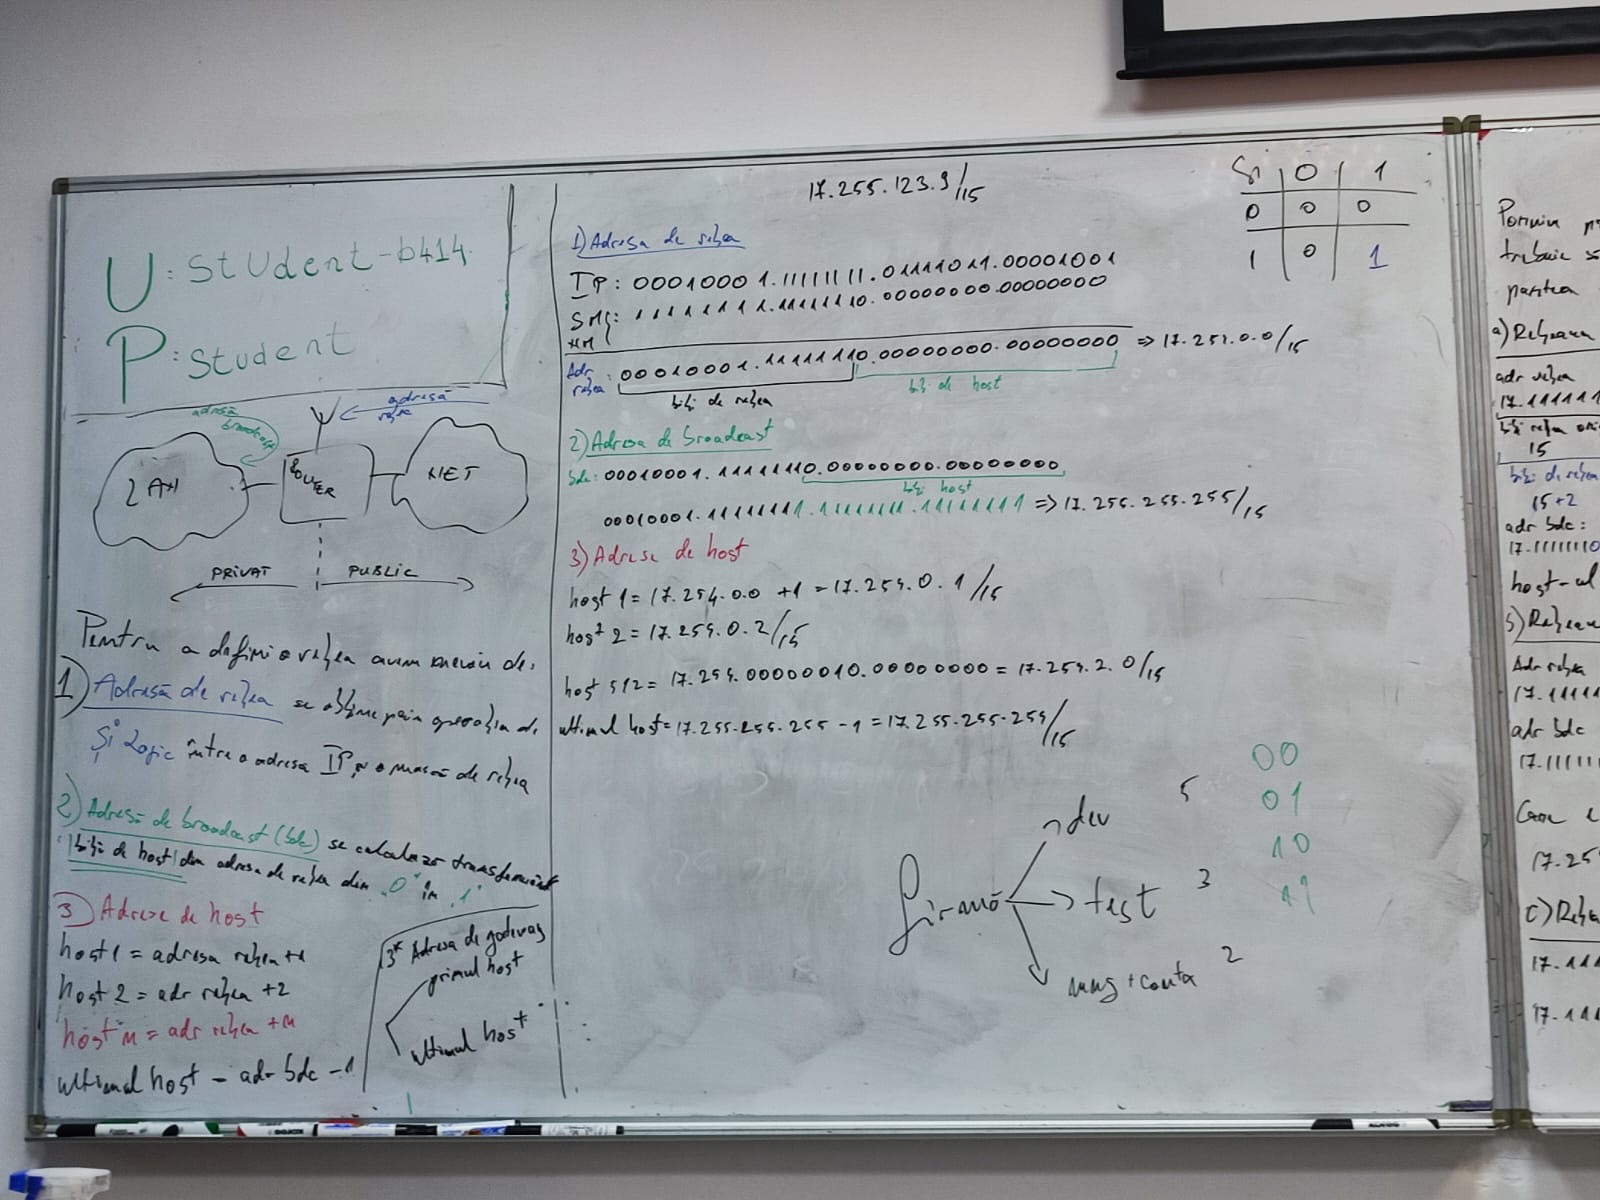 U: Student-b414
P: Student
adresă broadcast
adresă rețea
LAN
ROUTER
NET
PRIVAT
PUBLIC
Pentru a defini o rețea avem nevoie de:
1) Adresă de rețea se obține prin operația de
Și Logic între o adresa IP și o mască de rețea
2) Adresă de broadcast (bdc) se calculează transformând
biții de host din adresa de rețea din "0" în "1"
3) Adrese de host
host 1 = adresa rețea +1
host 2 = adr rețea +2
host n = adr rețea +n
ultimul host = adr bdc -1
3* Adresa de gateway
primul host
ultimul host
17.255.123.9/15
1) Adresa de rețea
IP: 00010001.11111111.01111011.00001001
SM: 11111111.11111110.00000000.00000000
Adr rețea: 00010001.11111110.00000000.00000000 => 17.254.0.0/15
biți de rețea
biți de host
2) Adresa de broadcast
bdc: 00010001.11111110.00000000.00000000
biți host
00010001.11111111.11111111.11111111 => 17.255.255.255/15
3) Adrese de host
host 1 = 17.254.0.0 +1 = 17.254.0.1/15
host 2 = 17.254.0.2/15
host 512 = 17.254.00000010.00000000 = 17.254.2.0/15
ultimul host = 17.255.255.255 - 1 = 17.255.255.254/15
Și 0 1
0 0 0
1 0 1
Firmă
dev 5
test 3
mng + conta 2
00
01
10
11
Pornim
trebuie
partea
a) Rețeaua
adr rețea
17.111111
biți rețea
15
biți de rețea
15+2
adr bdc:
17.11111110
host-ul
b) Rețeaua
Adr rețea
17.11111
adr bdc
17.11111
Care e
17.25
c) Rețea
17.111
17.111